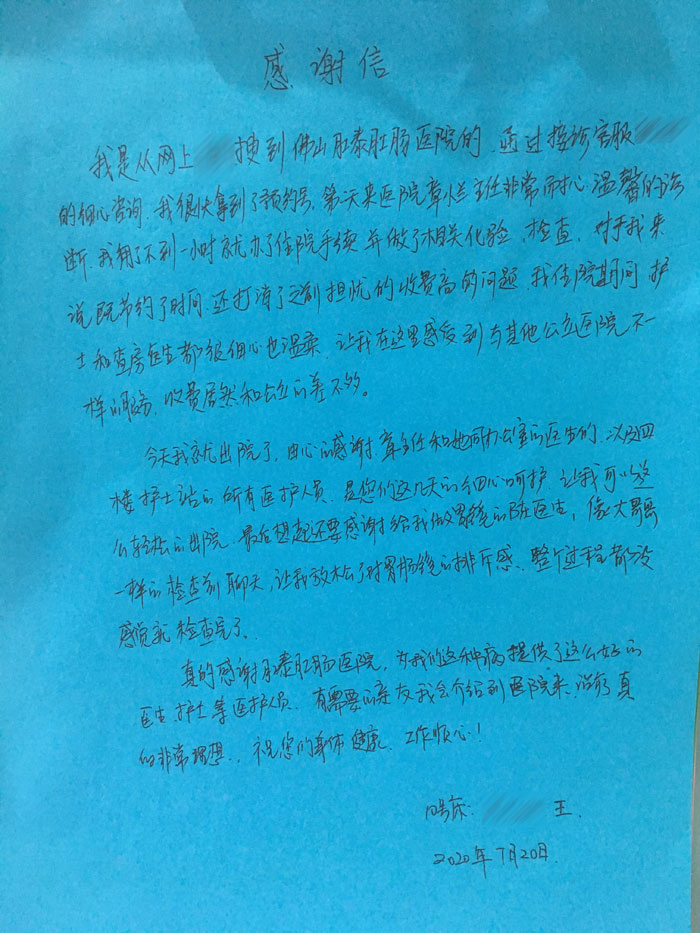 感谢信
我是从网上 搜到佛山肛泰肛肠医院的,通过接诊客服
的细心咨询,我很快拿到了预约号,第二天来医院章忙主任非常耐心、温馨的诊
断,我用了不到一小时就办了住院手续并做了相关化验、检查,对于我来
说既节约了时间,还打消了之前担忧的收费高的问题,我住院期间护
士和查房医生都很细心也温柔,让我在这里感受到与其他公立医院不一
样的服务,收费居然和公立的差不多。
今天我就出院了,由心的感谢章主任和她同办公室的医生的,以及四
楼护士站的所有医护人员,是您们这几天的细心呵护,让我可以这
么轻松的出院,最后想起还要感谢给我做胃镜的陈医生,像大哥哥
一样的检查前聊天,让我放松了对胃肠镜的排斥感、整个过程都没
感觉就检查完了、
真的感谢肛泰肛肠医院,为我们这种病提供了这么好的
医生护士等医护人员,有需要的亲友我会介绍到医院来、治疗真
的非常理想、,祝您们身体健康、工作顺心!
床: 王
2020年7月20日.